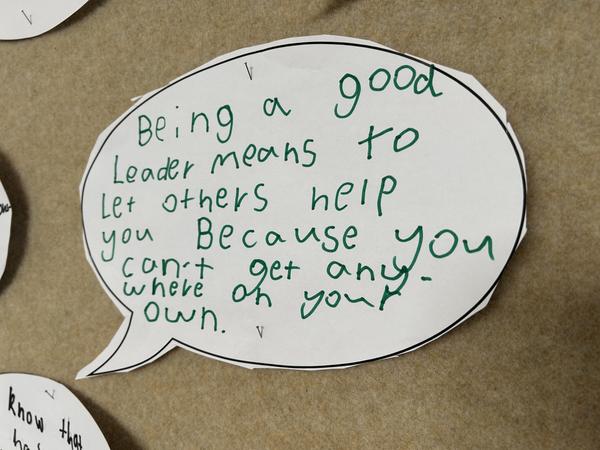 Being a good
Leader means to
Let others help
you Because you
can't get any-
where on your
own.
know that